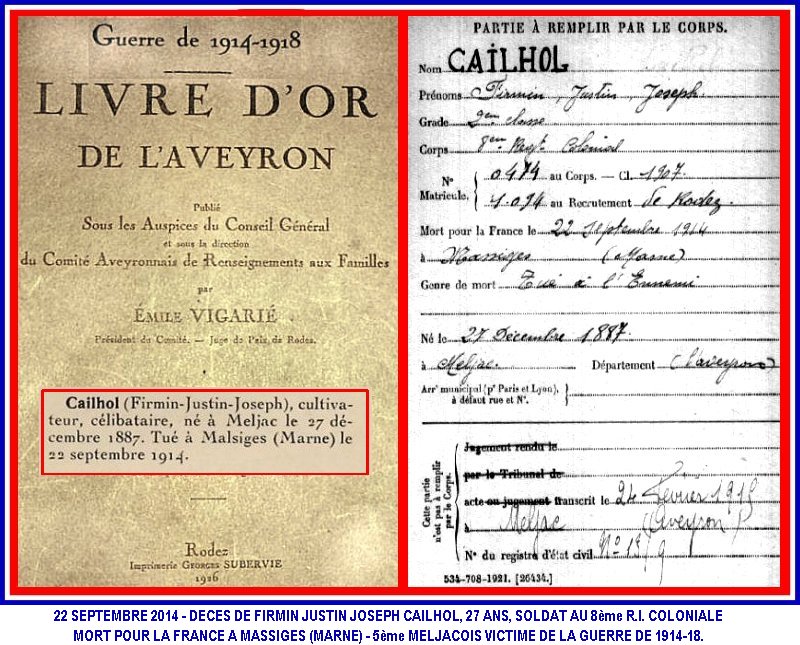 Guerre de 1914-1918
LIVRE D'OR
DE L'AVEYRON
Publié
Sous les Auspices du Conseil Général
et sous la direction
du Comité Aveyronnais de Renseignements aux Familles
par
ÉMILE VIGARIÉ
Président du Comité. — Juge de Paix de Rodez.
Cailhol (Firmin-Justin-Joseph), cultiva-
teur, célibataire, né à Meljac le 27 dé-
cembre 1887. Tué à Malsiges (Marne) le
22 septembre 1914.
Rodez
Imprimerie GEORGES SUBERVIE
1926
PARTIE À REMPLIR PAR LE CORPS.
Nom CAILHOL
Prénoms Firmin, Justin, Joseph
Grade 2eme classe
Corps 8em Regt Colonial
N° Matricule. { 0474 au Corps. — Cl. 1907
1.094 au Recrutement de Rodez
Mort pour la France le 22 Septembre 1914
à Massiges (Marne)
Genre de mort Tué à l'Ennemi
Né le 27 Décembre 1887
à Meljac Département (l'aveyron)
Arrt municipal (pr Paris et Lyon), à défaut rue et N°.
Cette partie n'est pas à remplir par le Corps.
Jugement rendu le
par le Tribunal de
acte ou jugement transcrit le 24 Février 1915
à Meljac (Aveyron)
N° du registre d'état civil N° 13
534-708-1921. [26434.]
22 SEPTEMBRE 2014 - DECES DE FIRMIN JUSTIN JOSEPH CAILHOL, 27 ANS, SOLDAT AU 8ème R.I. COLONIALE
MORT POUR LA FRANCE A MASSIGES (MARNE) - 5ème MELJACOIS VICTIME DE LA GUERRE DE 1914-18.